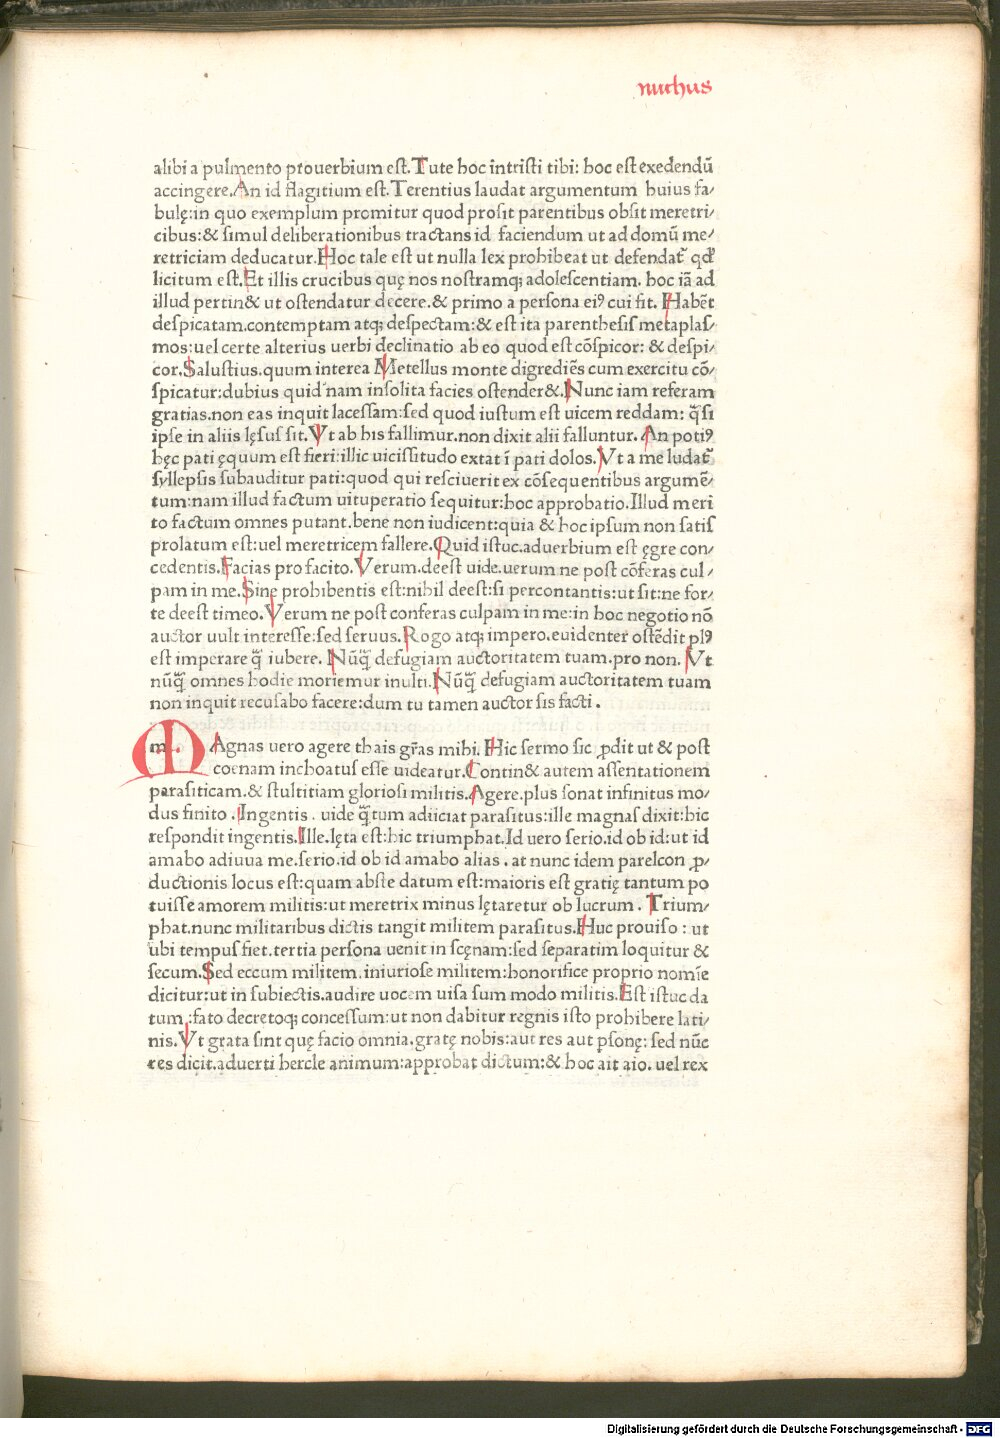 nuchus
alibi a pulmento prouerbium est. Tute hoc intristi tibi: hoc est exedendū
accingere. An id flagitium est. Terentius laudat argumentum huius fa/
bulę: in quo exemplum promitur quod prosit parentibus obsit meretri/
cibus: & simul deliberationibus tractans id faciendum ut ad domū me/
retriciam deducatur. Hoc tale est ut nulla lex prohibeat ut defendat᷑ qđ
licitum est. Et illis crucibus quę nos nostramq; adolescentiam. hoc iā ad
illud pertin& ut ostendatur decere. & primo a persona eiꝰ cui fit. Habēt
despicatam. contemptam atq; despectam: & est ita parenthesis metaplas/
mos: uel certe alterius uerbi declinatio ab eo quod est cōspicor: & despi/
cor. Salustius. quum interea Metellus monte digrediēs cum exercitu cō/
spicatur: dubius quid nam insolita facies ostender&. Nunc iam referam
gratias. non eas inquit lacessam: sed quod iustum est uicem reddam: q̄si
ipse in aliis lęsus sit. Vt ab his fallimur. non dixit alii falluntur. An potiꝰ
hęc pati ęquum est fieri: illic uicissitudo extat ī pati dolos. Vt a me ludat᷑
syllepsis subauditur pati: quod qui resciuerit ex cōsequentibus argumē/
tum: nam illud factum uituperatio sequitur: hoc approbatio. Illud meri
to factum omnes putant. bene non iudicent: quia & hoc ipsum non satis
prolatum est: uel meretricem fallere. Quid istuc. aduerbium est ęgre con/
cedentis. Facias pro facito. Verum. deest uide. uerum ne post cōferas cul/
pam in me. Sine prohibentis est: nihil deest: si percontantis: ut sit: ne for/
te deest timeo. Verum ne post conferas culpam in me: in hoc negotio nō
auctor uult interesse: sed seruus. Rogo atq; impero. euidenter ostēdit plꝰ
est imperare q̄ iubere. Nūq̄ defugiam auctoritatem tuam. pro non. Vt
nūq̄ omnes hodie moriemur inulti. Nūq̄ defugiam auctoritatem tuam
non inquit recusabo facere: dum tu tamen auctor sis facti.
m Agnas uero agere thais gr̄as mihi. Hic sermo sic ꝓdit ut & post
coenam inchoatus esse uideatur. Contin& autem assentationem
parasiticam. & stultitiam gloriosi militis. Agere. plus sonat infinitus mo/
dus finito. Ingentis. uide q̄tum adiiciat parasitus: ille magnas dixit: hic
respondit ingentis. Ille. lęta est: hic triumphat. Id uero serio. id ob id: ut id
amabo adiuua me. serio. id ob id amabo alias. at nunc idem parelcon ꝓ/
ductionis locus est: quam abste datum est: maioris est gratię tantum po
tuisse amorem militis: ut meretrix minus lętaretur ob lucrum. Trium/
phat. nunc militaribus dictis tangit militem parasitus. Huc prouiso: ut
ubi tempus fiet. tertia persona uenit in scęnam: sed separatim loquitur &
secum. Sed eccum militem. iniuriose militem: honorifice proprio nomīe
dicitur: ut in subiectis. audire uocem uisa sum modo militis. Est istuc da
tum: fato decretoq; concessum: ut non dabitur regnis isto prohibere lati/
nis. Vt grata sint quę facio omnia. gratę nobis: aut res aut ꝑsonę: sed nūc
res dicit. aduerti hercle animum: approbat dictum: & hoc ait aio. uel rex
Digitalisierung gefördert durch die Deutsche Forschungsgemeinschaft - DFG